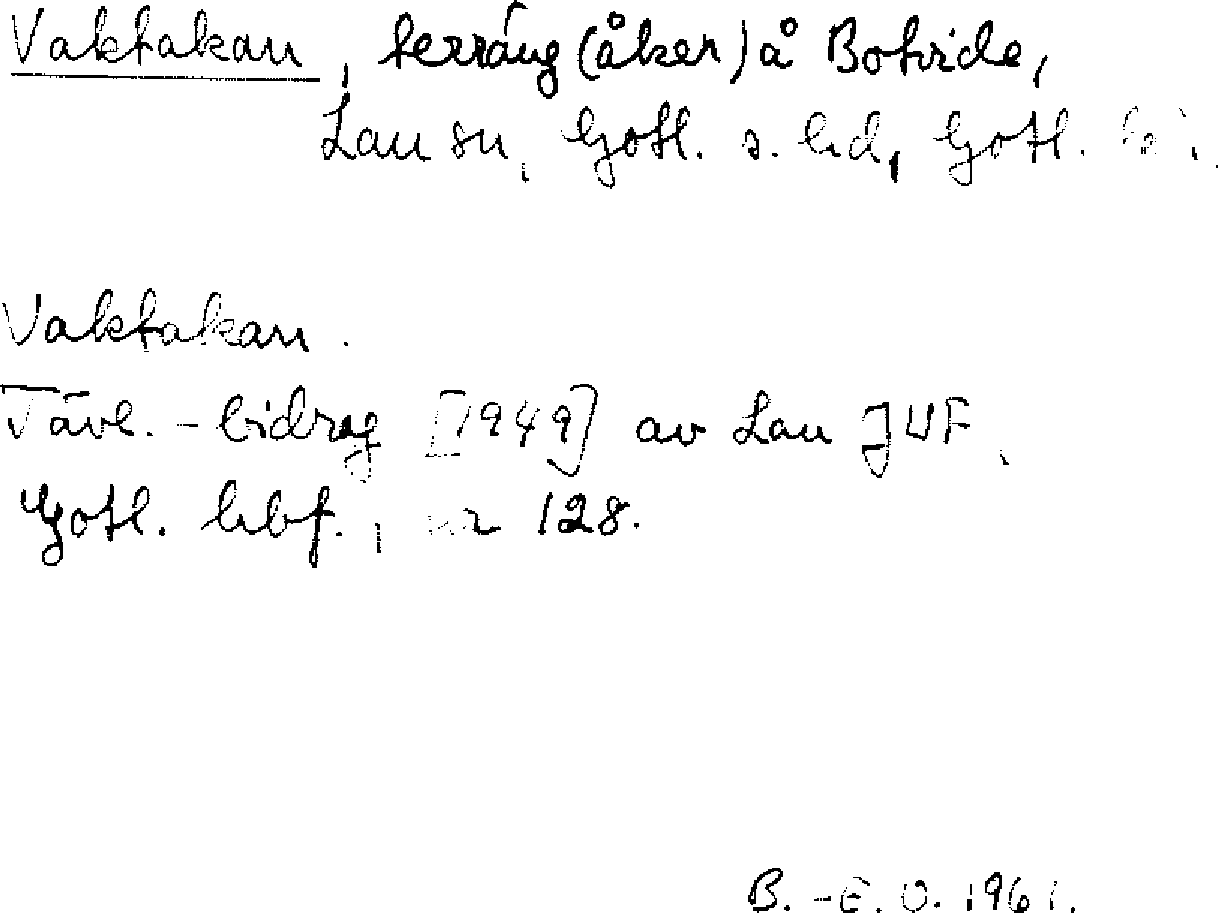 Vaktakan, terräng (åker) å Botvide,
Lau sn, Gotl. s. hd, Gotl.
Vaktakan.
Tävl.-bidrag [1949] av Lau JUF,
Gotl. hbf., nr 128.
B.-E. O. 1961.